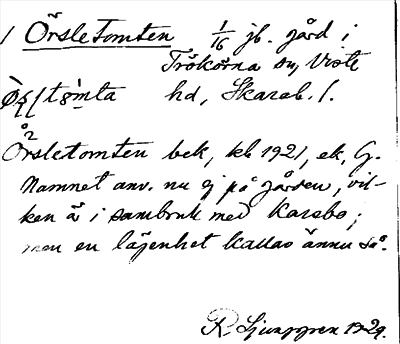 1 Örsletomten 1/16 jb. gård i
Trökörna sn, Viste
hd, Skarab. l.
Örsletomten bek, kb 1921, ek, G.
Namnet anv. nu ej på gården, vil-
ken är i sambruk med Karsbo;
men en lägenhet kallas ännu så.
R. Ljunggren 1929.